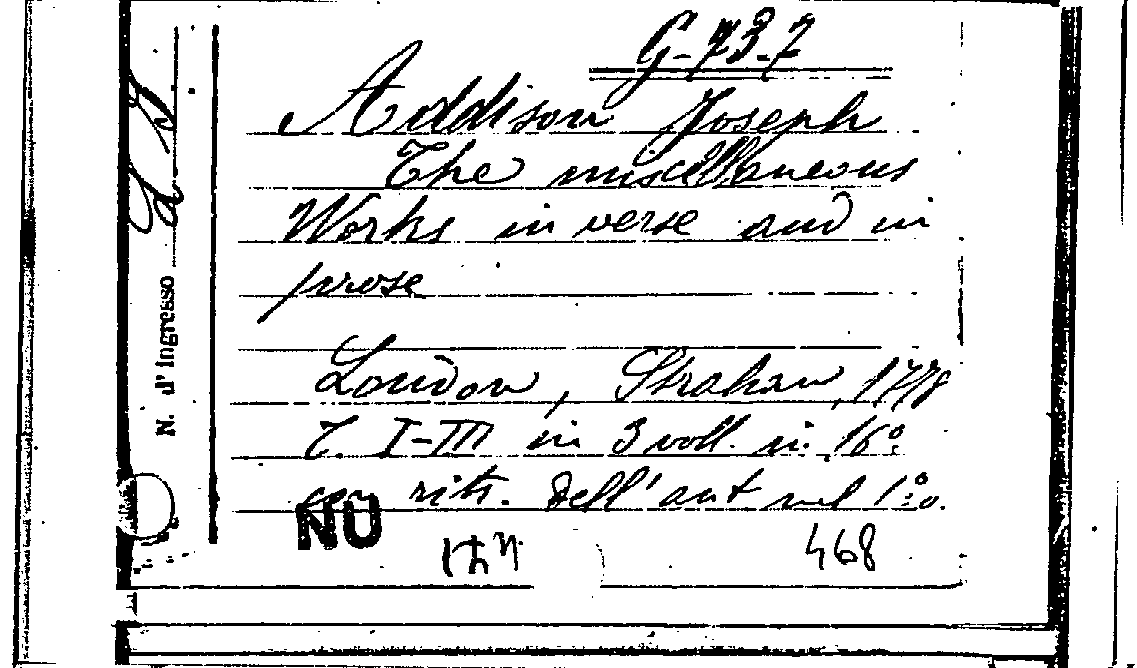 G-73-7
Addison Joseph
The miscellaneous
Works in verse and in
prose
London, Strahan, 1778
T. I-III in 3 voll. in 16º
con ritr. dell'aut nel 1º.
NU
468
N. d'ingresso